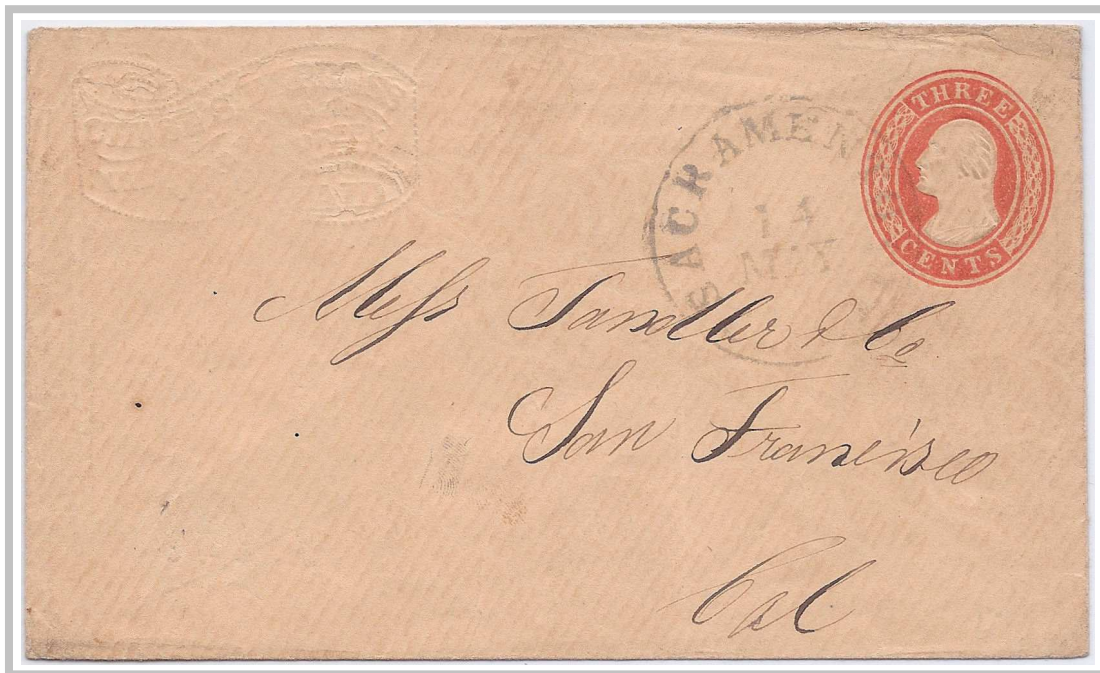 THREE
CENTS
SACRAMEN
14
MAY
Mess Tandler & Co
San Francisco
Cal